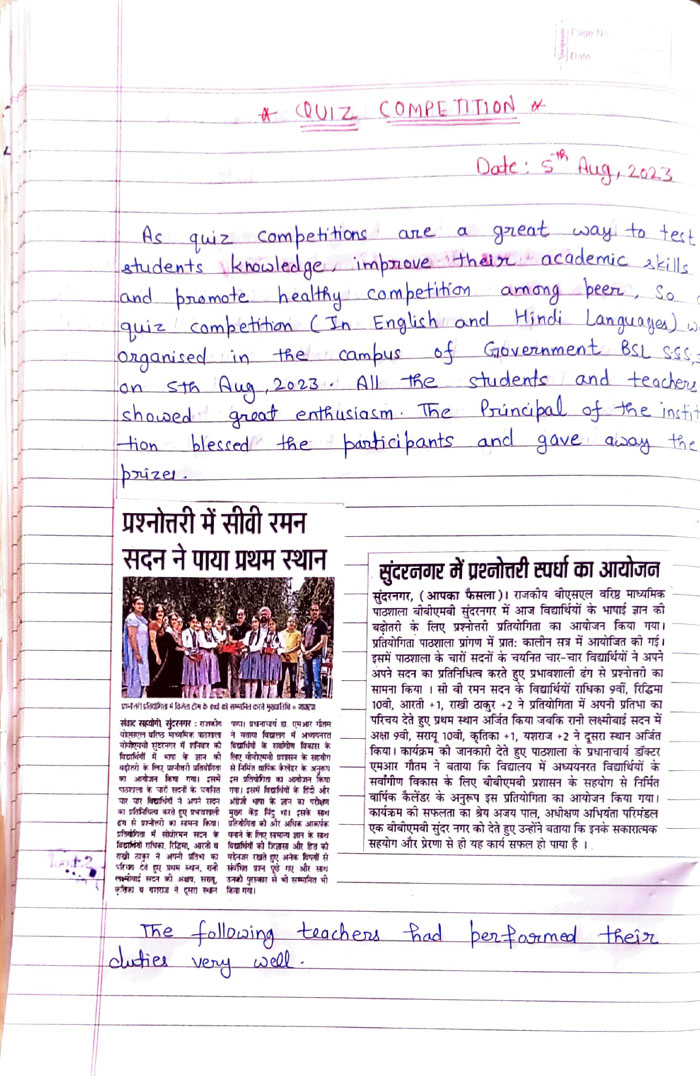 Page No.
Date
* QUIZ COMPETITION *
Date: 5th Aug, 2023
As quiz competitions are a great way to test
students knowledge, improve their academic skills
and promote healthy competition among peer, So
quiz competition (In English and Hindi Languages) w
organised in the campus of Government BSL SSS,
on 5th Aug, 2023. All the students and teachers
showed great enthusiasm. The Principal of the instit
tion blessed the participants and gave away the
prizes.
प्रश्नोत्तरी में सीवी रमन
सदन ने पाया प्रथम स्थान
प्रश्नोत्तरी प्रतियोगिता में विजेता टीम के बच्चों को सम्मानित करते मुख्यातिथि
संवाद सहयोगी, सुंदरनगर : राजकीय
बीएसएल वरिष्ठ माध्यमिक पाठशाला
बीबीएमबी सुंदरनगर में शनिवार को
विद्यार्थियों में भाषा के ज्ञान की
बढ़ोतरी के लिए प्रश्नोत्तरी प्रतियोगिता
का आयोजन किया गया। इसमें
पाठशाला के चारों सदनों के चयनित
चार चार विद्यार्थियों ने अपने सदन
का प्रतिनिधित्व करते हुए प्रभावशाली
ढंग से प्रश्नोत्तरी का सामना किया।
प्रतियोगिता में सीवीरमन सदन के
विद्यार्थियों राधिका, रिद्धिमा, आरती व
राखी ठाकुर ने अपनी प्रतिभा का
परिचय देते हुए प्रथम स्थान, रानी
लक्ष्मीबाई सदन की अक्षा, सरायू,
कृतिका व यशराज ने दूसरा स्थान
पाया। प्रधानाचार्य डा. एमआर गौतम
ने बताया विद्यालय में अध्ययनरत
विद्यार्थियों के सर्वांगीण विकास के
लिए बीबीएमबी प्रशासन के सहयोग
से निर्मित वार्षिक कैलेंडर के अनुरूप
इस प्रतियोगिता का आयोजन किया
गया। इसमें विद्यार्थियों के हिंदी और
अंग्रेजी भाषा के ज्ञान का परीक्षण
मुख्य केंद्र बिंदु था। इसके साथ
प्रतियोगिता को और अधिक आकर्षक
बनाने के लिए सामान्य ज्ञान के साथ
विद्यार्थियों की जिज्ञासा और हित को
मद्देनजर रखते हुए अनेक विषयों से
संबंधित प्रश्न पूछे गए और साथ
उनको पुरस्कार से भी सम्मानित भी
किया गया।
सुंदरनगर में प्रश्नोत्तरी स्पर्धा का आयोजन
सुंदरनगर, (आपका फैसला)। राजकीय बीएसएल वरिष्ठ माध्यमिक
पाठशाला बीबीएमबी सुंदरनगर में आज विद्यार्थियों के भाषाई ज्ञान की
बढ़ोतरी के लिए प्रश्नोत्तरी प्रतियोगिता का आयोजन किया गया।
प्रतियोगिता पाठशाला प्रांगण में प्रात: कालीन सत्र में आयोजित की गई।
इसमें पाठशाला के चारों सदनों के चयनित चार-चार विद्यार्थियों ने अपने
अपने सदन का प्रतिनिधित्व करते हुए प्रभावशाली ढंग से प्रश्नोत्तरी का
सामना किया । सी वी रमन सदन के विद्यार्थियों राधिका 9वीं, रिद्धिमा
10वी, आरती +1, राखी ठाकुर +2 ने प्रतियोगिता में अपनी प्रतिभा का
परिचय देते हुए प्रथम स्थान अर्जित किया जबकि रानी लक्ष्मीबाई सदन में
अक्षा 9वी, सरायू 10वी, कृतिका +1, यशराज +2 ने दूसरा स्थान अर्जित
किया। कार्यक्रम की जानकारी देते हुए पाठशाला के प्रधानाचार्य डॉक्टर
एमआर गौतम ने बताया कि विद्यालय में अध्ययनरत विद्यार्थियों के
सर्वांगीण विकास के लिए बीबीएमबी प्रशासन के सहयोग से निर्मित
वार्षिक कैलेंडर के अनुरूप इस प्रतियोगिता का आयोजन किया गया।
कार्यक्रम की सफलता का श्रेय अजय पाल, अधीक्षण अभियंता परिमंडल
एक बीबीएमबी सुंदर नगर को देते हुए उन्होंने बताया कि इनके सकारात्मक
सहयोग और प्रेरणा से ही यह कार्य सफल हो पाया है ।
The following teachers had performed their
duties very well.